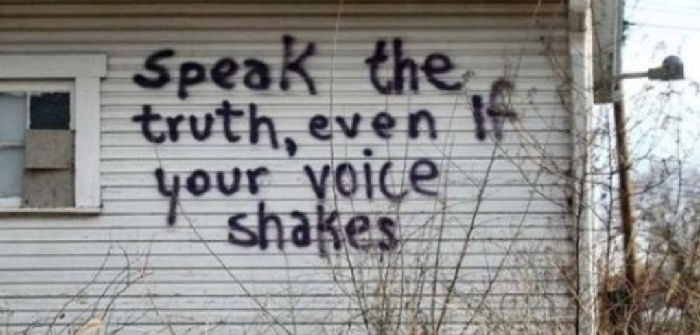 Speak the
truth, even If
your voice
shakes